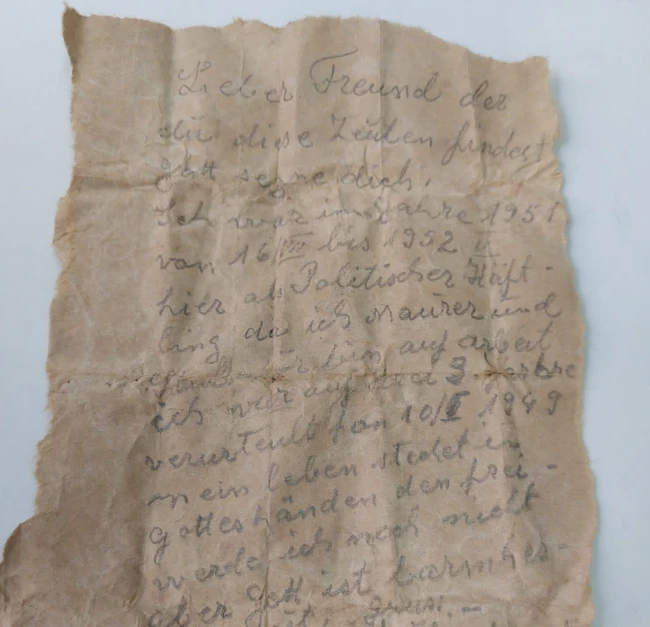 Lieber Freund der
dü diese Zeilen findest
gott segne dich.
Ich war im Jahre 1951
von 16/VII bis 1952 V
hier als Politischer Häft-
ling da ich Maurer und
bin auf arbeit
ich war auf 3
verurteult von 10/I 1949
mein leben stehet in
gotteshänden den frei-
werde ich noch nicht
aber gott ist barmhes-